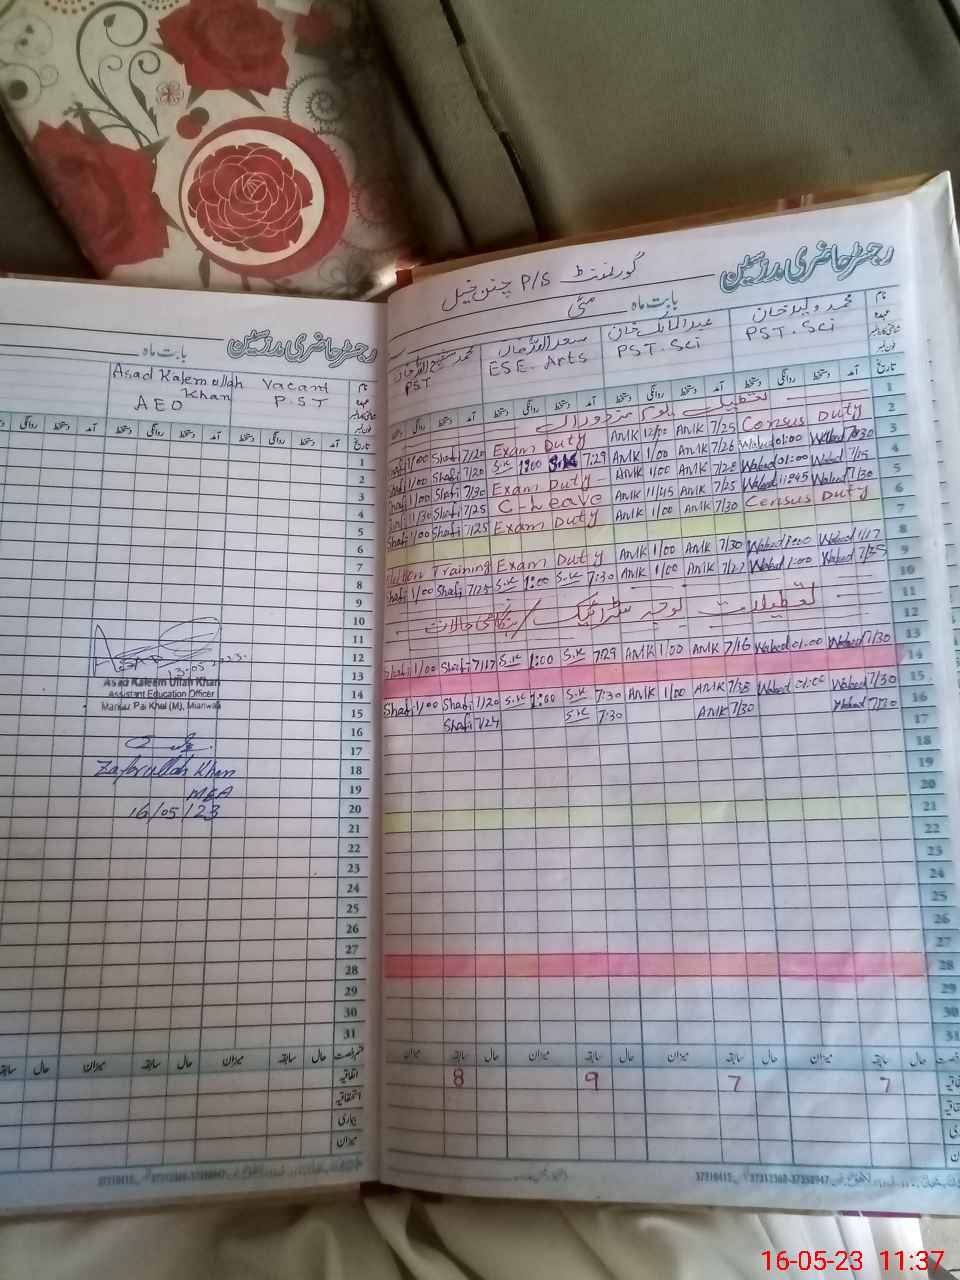 رجسٹر حاضری مدرسین
بابت ماہ
Asad Kaleem ullah Khan
AEO
Vacant
P.S.T
نام
عہدہ
تاریخ
آمد دستخط روانگی دستخط آمد دستخط روانگی دستخط
1
2
3
4
5
6
7
8
9
10
11
12
13
14
15
16
17
18
19
20
21
22
23
24
25
26
27
28
29
30
31
13-05-2023
Asad Kaleem Ullah Khan
Assistant Education Officer
Zafarullah Khan
MEA
16/05/23
حال سابقہ میزان حال سابقہ میزان حال
اتفاقیہ
استحقاقیہ
بیماری
میزان
رجسٹر حاضری مدرسین
گورنمنٹ P/S
بابت ماہ مئی
نام
عہدہ
محمد ولید خان
PST. Sci
عبدالمالک خان
PST. Sci
ESE. Arts
PST
تاریخ
آمد دستخط روانگی دستخط آمد دستخط روانگی دستخط آمد دستخط روانگی دستخط
1 تعطیل یوم مزدوراں
2 Shafi 1/00 Shafi 7/20 Exam Duty AMK 12/00 AMK 7/25 Census Duty
3 Shafi 1/00 Shafi 7/20 S.K 1:00 S.K 7:29 AMK 1/00 AMK 7/26 Waleed 01:00 Waleed 7/30
4 Shafi 1/00 Shafi 7/30 Exam Duty AMK 1/00 AMK 7/28 Waleed 01:00 Waleed 7/15
5 Shafi 11/30 Shafi 7/25 C-Leave AMK 11/45 AMK 7/25 Waleed 11:45 Waleed 7/30
6 Shafi 1/00 Shafi 7/25 Exam Duty AMK 1/00 AMK 7/30 Census Duty
7
8 Training Exam Duty AMK 1/00 AMK 7/30 Waleed 1:00 Waleed
9 Shafi 1/00 Shafi 7/25 S.K 1:00 S.K 7:30 AMK 1/00 AMK 7/27 Waleed 1:00 Waleed 7/35
10
11 تعطیلات بوجہ سٹرائیک / ہنگامی حالات
12
13 Shafi 1/00 Shafi 7/17 S.K 1:00 S.K 7:29 AMK 1/00 AMK 7/16 Waleed 01:00 Waleed 7/30
14
15 Shafi 1/00 Shafi 7/20 S.K 1:00 S.K 7:30 AMK 1/00 AMK 7/38 Waleed 01:00 Waleed 7/30
16 Shafi 7/24 S.K 7:30 AMK 7/30 Waleed 7/30
17
18
19
20
21
22
23
24
25
26
27
28
29
30
31
حال سابقہ میزان حال سابقہ میزان حال سابقہ میزان حال سابقہ میزان
7 7 9 8
16-05-23 11:37